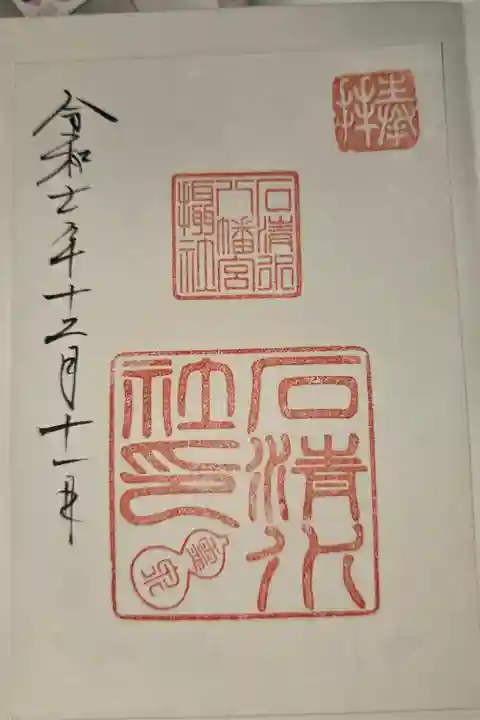 奉拝
石清水
八幡宮
攝社
石清水
社印
令和七年十二月十一日